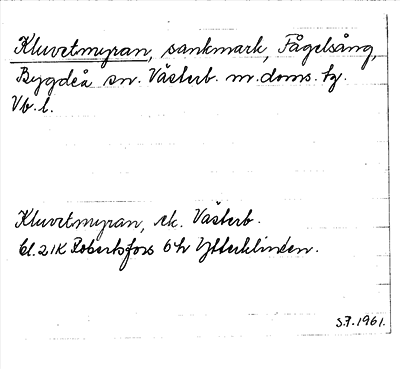 Kluvetmyran, sankmark, Fågelsång,
Bygdeå sn. Västerb. m. doms. tg.
Vb. l.
Kluvetmyran, ek. Västerb.
bl. 21K Robertsfors 6h Ytterklinten.
S.F. 1961.